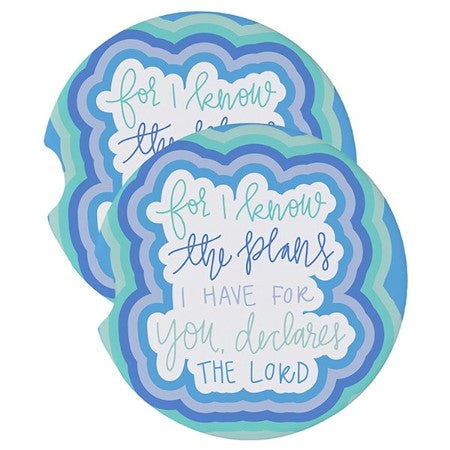 for I know
the plans
for I know
the plans
I HAVE FOR
you, declares
THE LORD